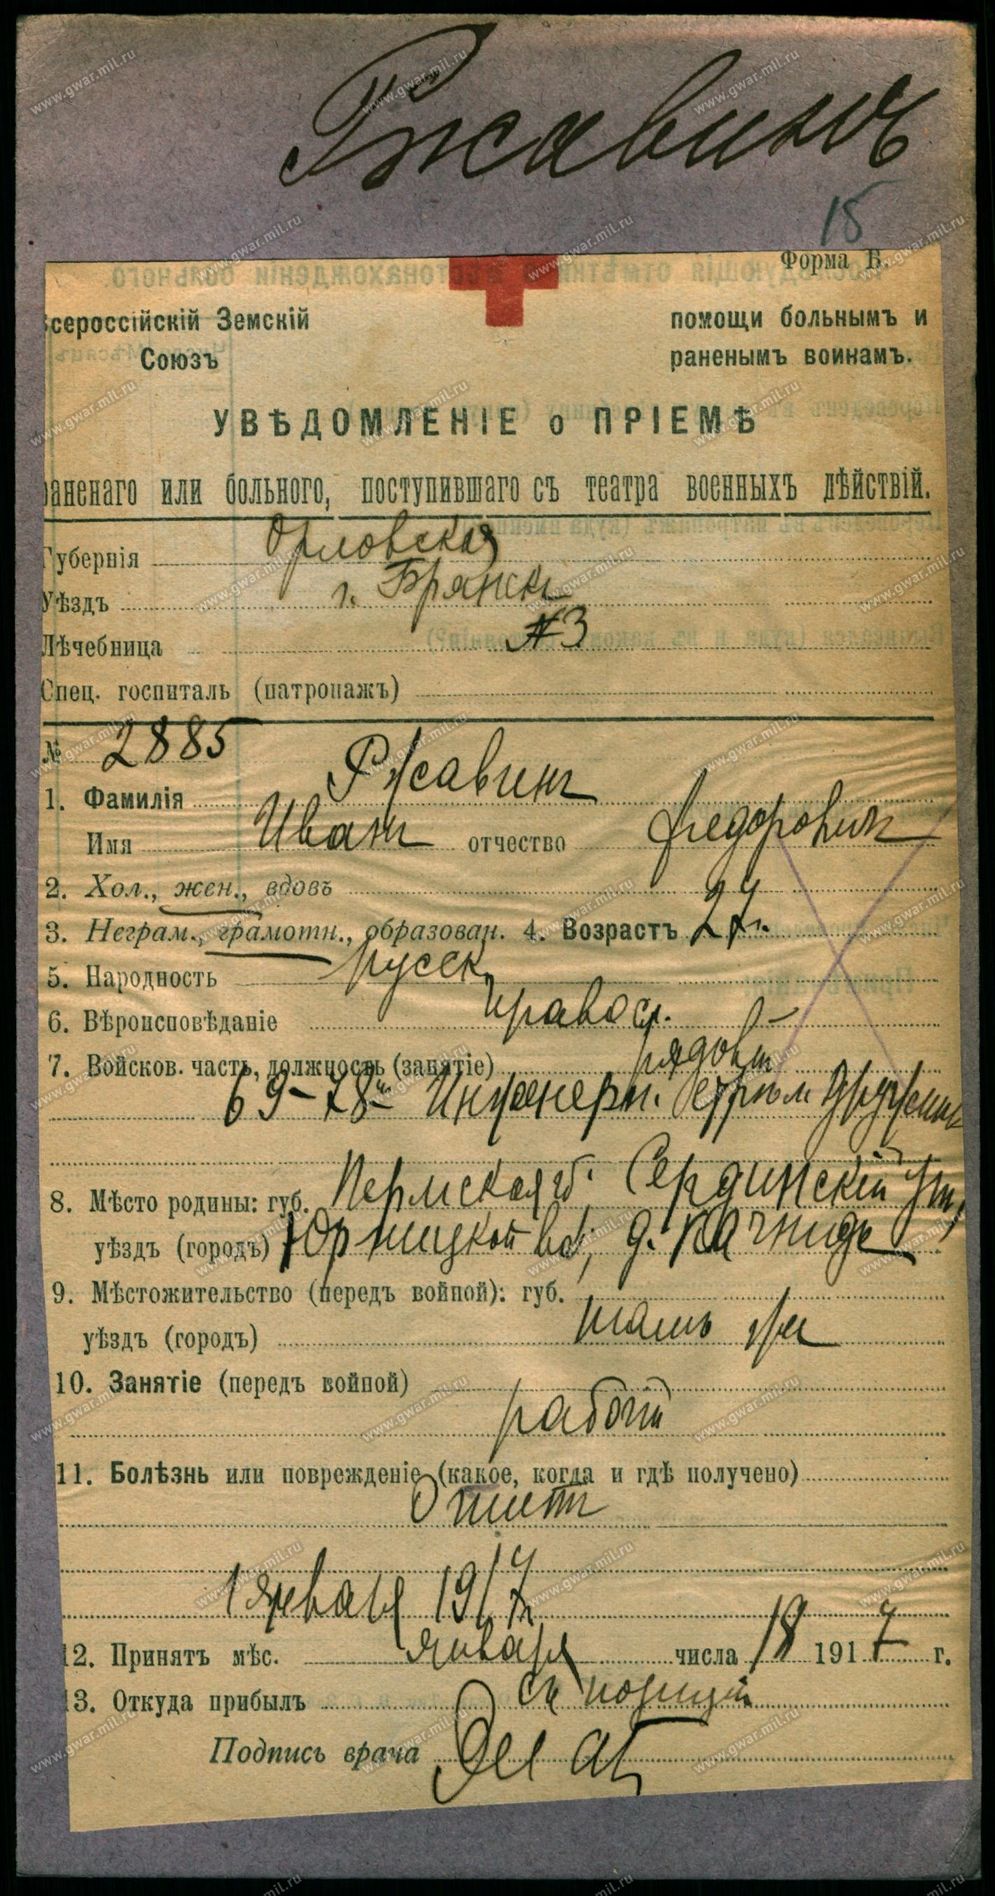 Ржавинъ
15
Форма Б.
Всероссійскій Земскій
Союзъ
помощи больнымъ и
раненымъ воинамъ.
УВѢДОМЛЕНІЕ о ПРІЕМѢ
раненаго или больного, поступившаго съ театра военныхъ дѣйствій.
Губернія Орловская
Уѣздъ г. Брянскъ
Лѣчебница №3
Спец. госпиталь (патронажъ)
№ 2885
1. Фамилія Ржавинъ
Имя Иванъ отчество Федоровичъ
2. Хол., жен., вдовъ
3. Неграм., грамотн., образован. 4. Возрастъ 27 г.
5. Народность русск.
6. Вѣроисповѣданіе правосл.
7. Войсков. часть, должность (занятіе) рядов.
69-78 Инженерн. Строит. дружина
8. Мѣсто родины: губ. Пермская г.
уѣздъ (городъ) вол., д.
9. Мѣстожительство (передъ войной): губ.
уѣздъ (городъ) тамъ же
10. Занятіе (передъ войной)
рабочій
11. Болѣзнь или поврежденіе (какое, когда и гдѣ получено)
Отитъ
1 января 1917 г.
12. Принятъ мѣс. января числа 18 1917 г.
13. Откуда прибылъ съ позицій
Подпись врача
www.gwar.mil.ru